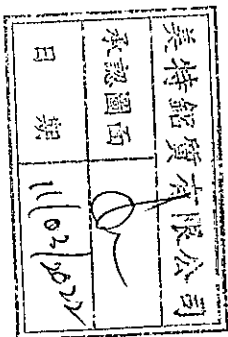 美特鋁質有限公司
承認圖面
日期 11/02/2022